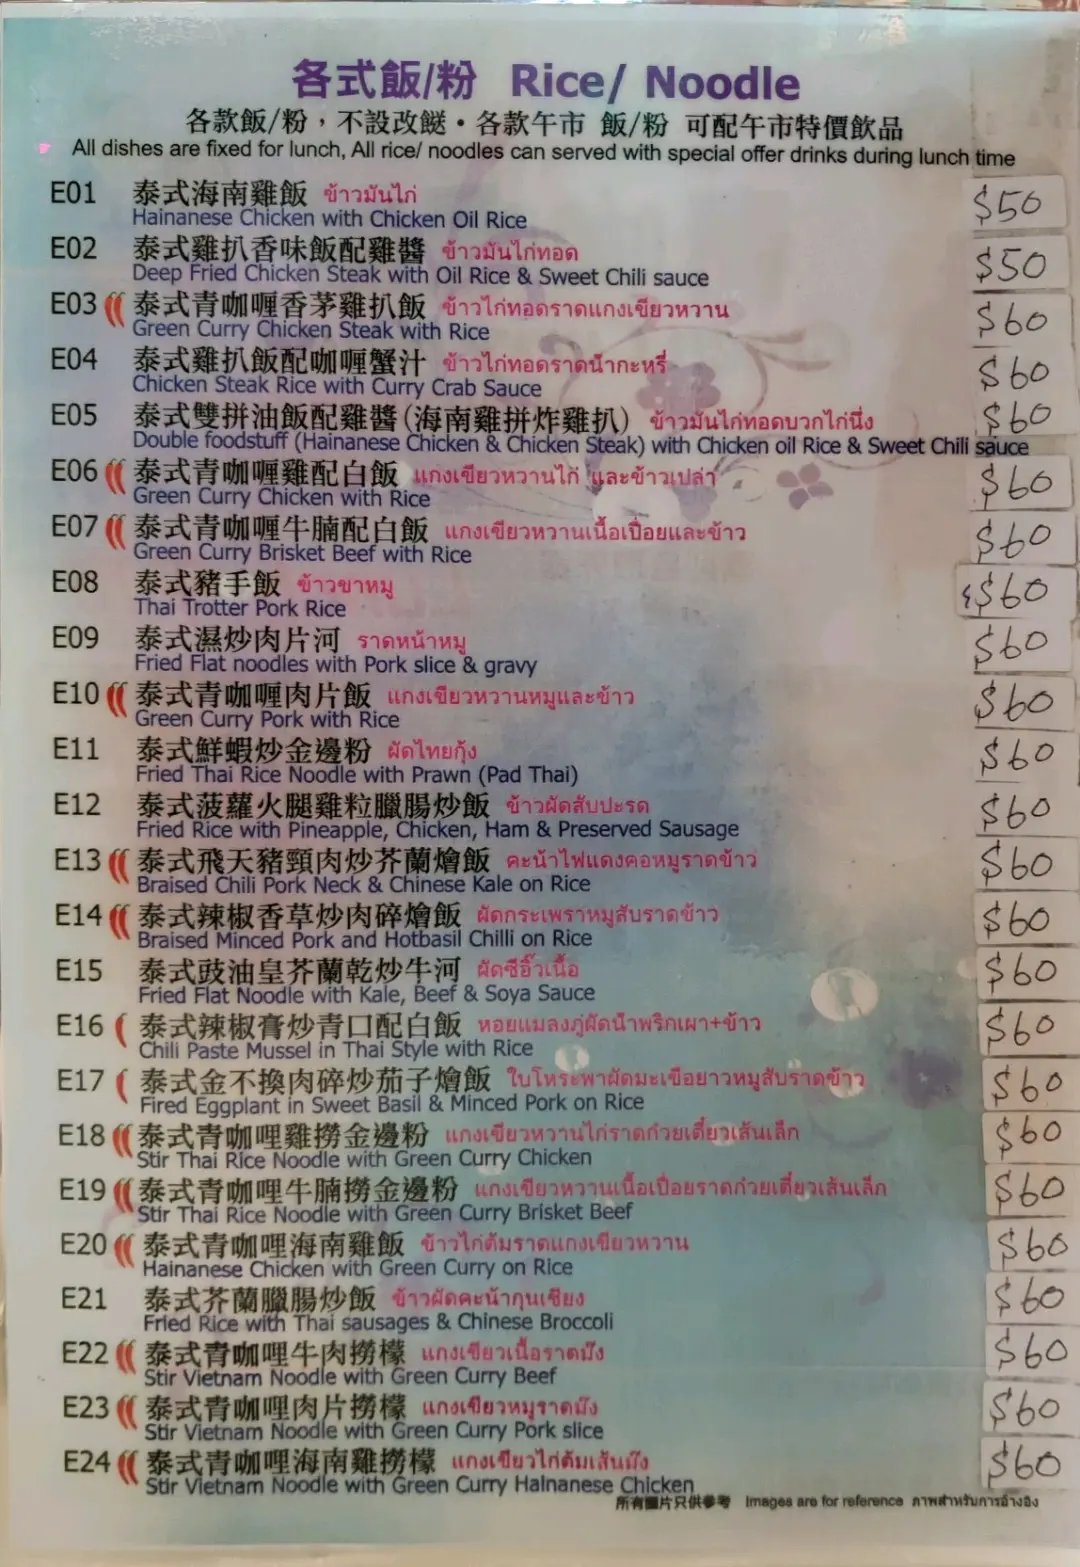 各式飯/粉 Rice/ Noodle
各款飯/粉，不設改餸・各款午市 飯/粉 可配午市特價飲品
All dishes are fixed for lunch, All rice/ noodles can served with special offer drinks during lunch time
E01 泰式海南雞飯 ข้าวมันไก่ $50
Hainanese Chicken with Chicken Oil Rice
E02 泰式雞扒香味飯配雞醬 ข้าวมันไก่ทอด $50
Deep Fried Chicken Steak with Oil Rice & Sweet Chili sauce
E03 泰式青咖喱香茅雞扒飯 ข้าวไก่ทอดราดแกงเขียวหวาน $60
Green Curry Chicken Steak with Rice
E04 泰式雞扒飯配咖喱蟹汁 ข้าวไก่ทอดราดน้ำกะหรี่ $60
Chicken Steak Rice with Curry Crab Sauce
E05 泰式雙拼油飯配雞醬(海南雞拼炸雞扒) ข้าวมันไก่ทอดบวกไก่นึ่ง $60
Double foodstuff (Hainanese Chicken & Chicken Steak) with Chicken oil Rice & Sweet Chili sauce
E06 泰式青咖喱雞配白飯 แกงเขียวหวานไก่ และข้าวเปล่า $60
Green Curry Chicken with Rice
E07 泰式青咖喱牛腩配白飯 แกงเขียวหวานเนื้อเปื่อยและข้าว $60
Green Curry Brisket Beef with Rice
E08 泰式豬手飯 ข้าวขาหมู $60
Thai Trotter Pork Rice
E09 泰式濕炒肉片河 ราดหน้าหมู $60
Fried Flat noodles with Pork slice & gravy
E10 泰式青咖喱肉片飯 แกงเขียวหวานหมูและข้าว $60
Green Curry Pork with Rice
E11 泰式鮮蝦炒金邊粉 ผัดไทยกุ้ง $60
Fried Thai Rice Noodle with Prawn (Pad Thai)
E12 泰式菠蘿火腿雞粒臘腸炒飯 ข้าวผัดสับปะรด $60
Fried Rice with Pineapple, Chicken, Ham & Preserved Sausage
E13 泰式飛天豬頸肉炒芥蘭燴飯 คะน้าไฟแดงคอหมูราดข้าว $60
Braised Chili Pork Neck & Chinese Kale on Rice
E14 泰式辣椒香草炒肉碎燴飯 ผัดกระเพราหมูสับราดข้าว $60
Braised Minced Pork and Hotbasil Chilli on Rice
E15 泰式豉油皇芥蘭乾炒牛河 ผัดซีอิ๊วเนื้อ $60
Fried Flat Noodle with Kale, Beef & Soya Sauce
E16 泰式辣椒膏炒青口配白飯 หอยแมลงภู่ผัดน้ำพริกเผา+ข้าว $60
Chili Paste Mussel in Thai Style with Rice
E17 泰式金不換肉碎炒茄子燴飯 ใบโหระพาผัดมะเขือยาวหมูสับราดข้าว $60
Fired Eggplant in Sweet Basil & Minced Pork on Rice
E18 泰式青咖哩雞撈金邊粉 แกงเขียวหวานไก่ราดก๋วยเตี๋ยวเส้นเล็ก $60
Stir Thai Rice Noodle with Green Curry Chicken
E19 泰式青咖哩牛腩撈金邊粉 แกงเขียวหวานเนื้อเปื่อยราดก๋วยเตี๋ยวเส้นเล็ก $60
Stir Thai Rice Noodle with Green Curry Brisket Beef
E20 泰式青咖哩海南雞飯 ข้าวไก่ต้มราดแกงเขียวหวาน $60
Hainanese Chicken with Green Curry on Rice
E21 泰式芥蘭臘腸炒飯 ข้าวผัดคะน้ากุนเชียง $60
Fried Rice with Thai sausages & Chinese Broccoli
E22 泰式青咖哩牛肉撈檬 แกงเขียวเนื้อราดมัง $60
Stir Vietnam Noodle with Green Curry Beef
E23 泰式青咖哩肉片撈檬 แกงเขียวหมูราดมัง $60
Stir Vietnam Noodle with Green Curry Pork slice
E24 泰式青咖哩海南雞撈檬 แกงเขียวไก่ต้มเส้นมัง $60
Stir Vietnam Noodle with Green Curry Hainanese Chicken
所有圖片只供參考 Images are for reference ภาพสำหรับการอ้างอิง